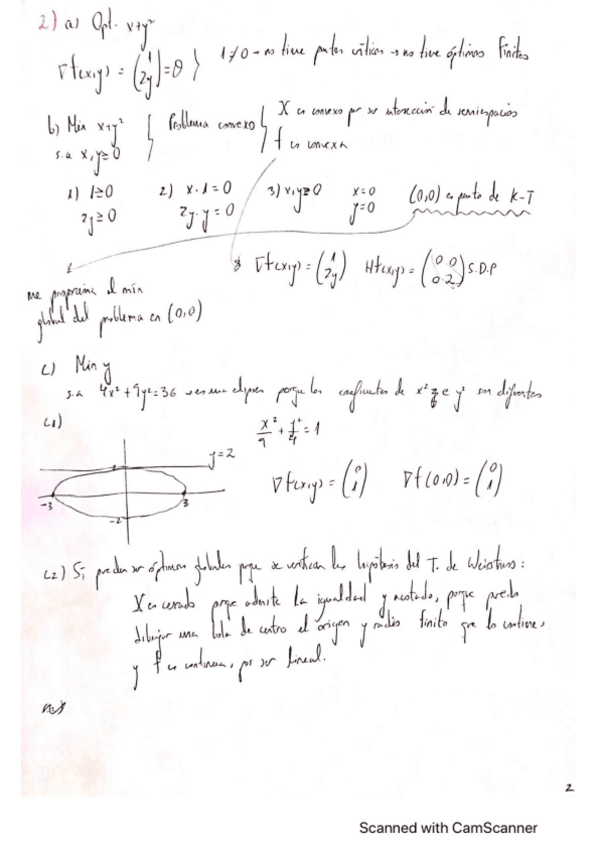 2) a) Opt. x+y²
∇f(x,y) = (1 2y) = θ } 1≠0 → no tiene puntos críticos → no tiene óptimos finitos
b) Min x+y² { Problema convexo { X es convexo por ser intersección de semiespacios
s.a x,y≥0 f es convexa
1) 1≥0 2) x·1=0 3) x,y≥0 x=0 (0,0) es punto de K-T
2y≥0 2y·y=0 y=0
∇f(x,y) = (1 2y) Hf(x,y) = (0 0 0 2) S.D.P
me proporciona el mín
global del problema en (0,0)
c) Min y
s.a 4x²+9y²=36 → es una elipse porque los coeficientes de x² e y² son diferentes
c1) x²/9 + y²/4 = 1
y=2
∇f(x,y) = (0 1) ∇f(0,0) = (0 1)
-3 3
-2
c2) Sí pueden ser óptimos globales porque se verifican las hipótesis del T. de Weierstrass:
X es cerrado porque admite la igualdad y acotado, porque puedo
dibujar una bola de centro el origen y radio finito que lo contiene,
y f es continua, por ser lineal.
2
Scanned with CamScanner